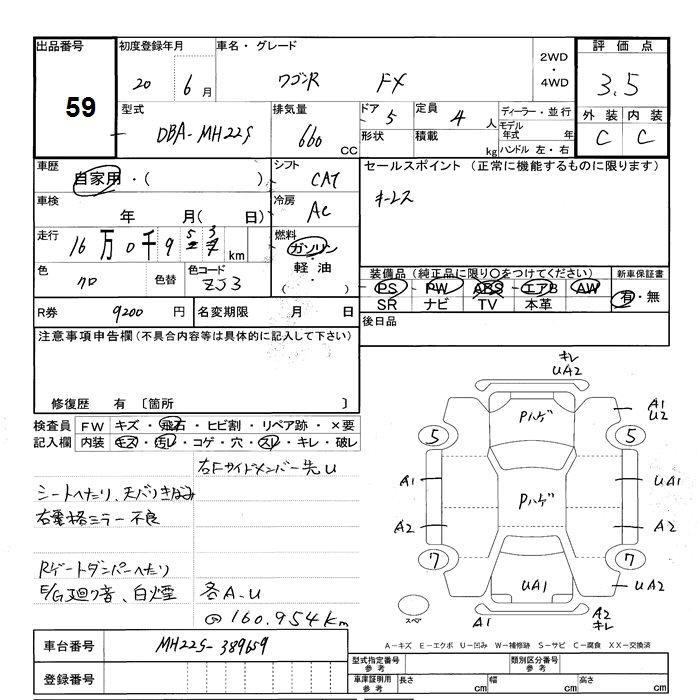 出品番号 初度登録年月 車名・グレード 評価点
59 20 6月 ワゴR FX 2WD・4WD 3.5
型式 排気量 ドア 5 定員 4人 ディーラー・並行 外装 内装
DBA-MH22S 660 CC 形状 積載 kg モデル年式 年 C C
ハンドル 左・右
車歴 自家用・( ) シフト CAT セールスポイント (正常に機能するものに限ります)
車検 年 月( 日) 冷房 AC キーレス
走行 16万0千9 5 3 km 燃料 ガソリン・軽油・( )
色 クロ 色替 色コード ZJ3
装備品 (純正品に限り○をつけてください) 新車保証書
PS PW ABS エアB AW 有・無
SR ナビ TV 本革
R券 9200 円 名変期限 月 日 後日品
注意事項申告欄 (不具合内容等は具体的に記入して下さい)
修復歴 有 〔箇所 〕
検査員 FW キズ・飛石・ヒビ割・リペア跡・×要
記入欄 内装 キズ・汚レ・コゲ・穴・スレ・キレ・破レ
右Fサイドメンバー先U
シートへたり、天バリきばみ
右電格ミラー不良
Rゲートダンパーへたり
E/G廻り音、白煙 各A.U
@160.954km
キレ
UA2
Pハゲ
A1
U2
5 5
A1 Pハゲ UA1
A2 A2
7 7
UA1 UA2
スペア A1 A2
キレ
A-キズ E-エクボ U-凹み W-補修跡 S-サビ C-腐食 XX-交換済
車台番号 MH22S-389659 型式指定番号 参考 類別区分番号 参考
登録番号 車庫証明用 参考 長さ cm 幅 cm 高さ cm